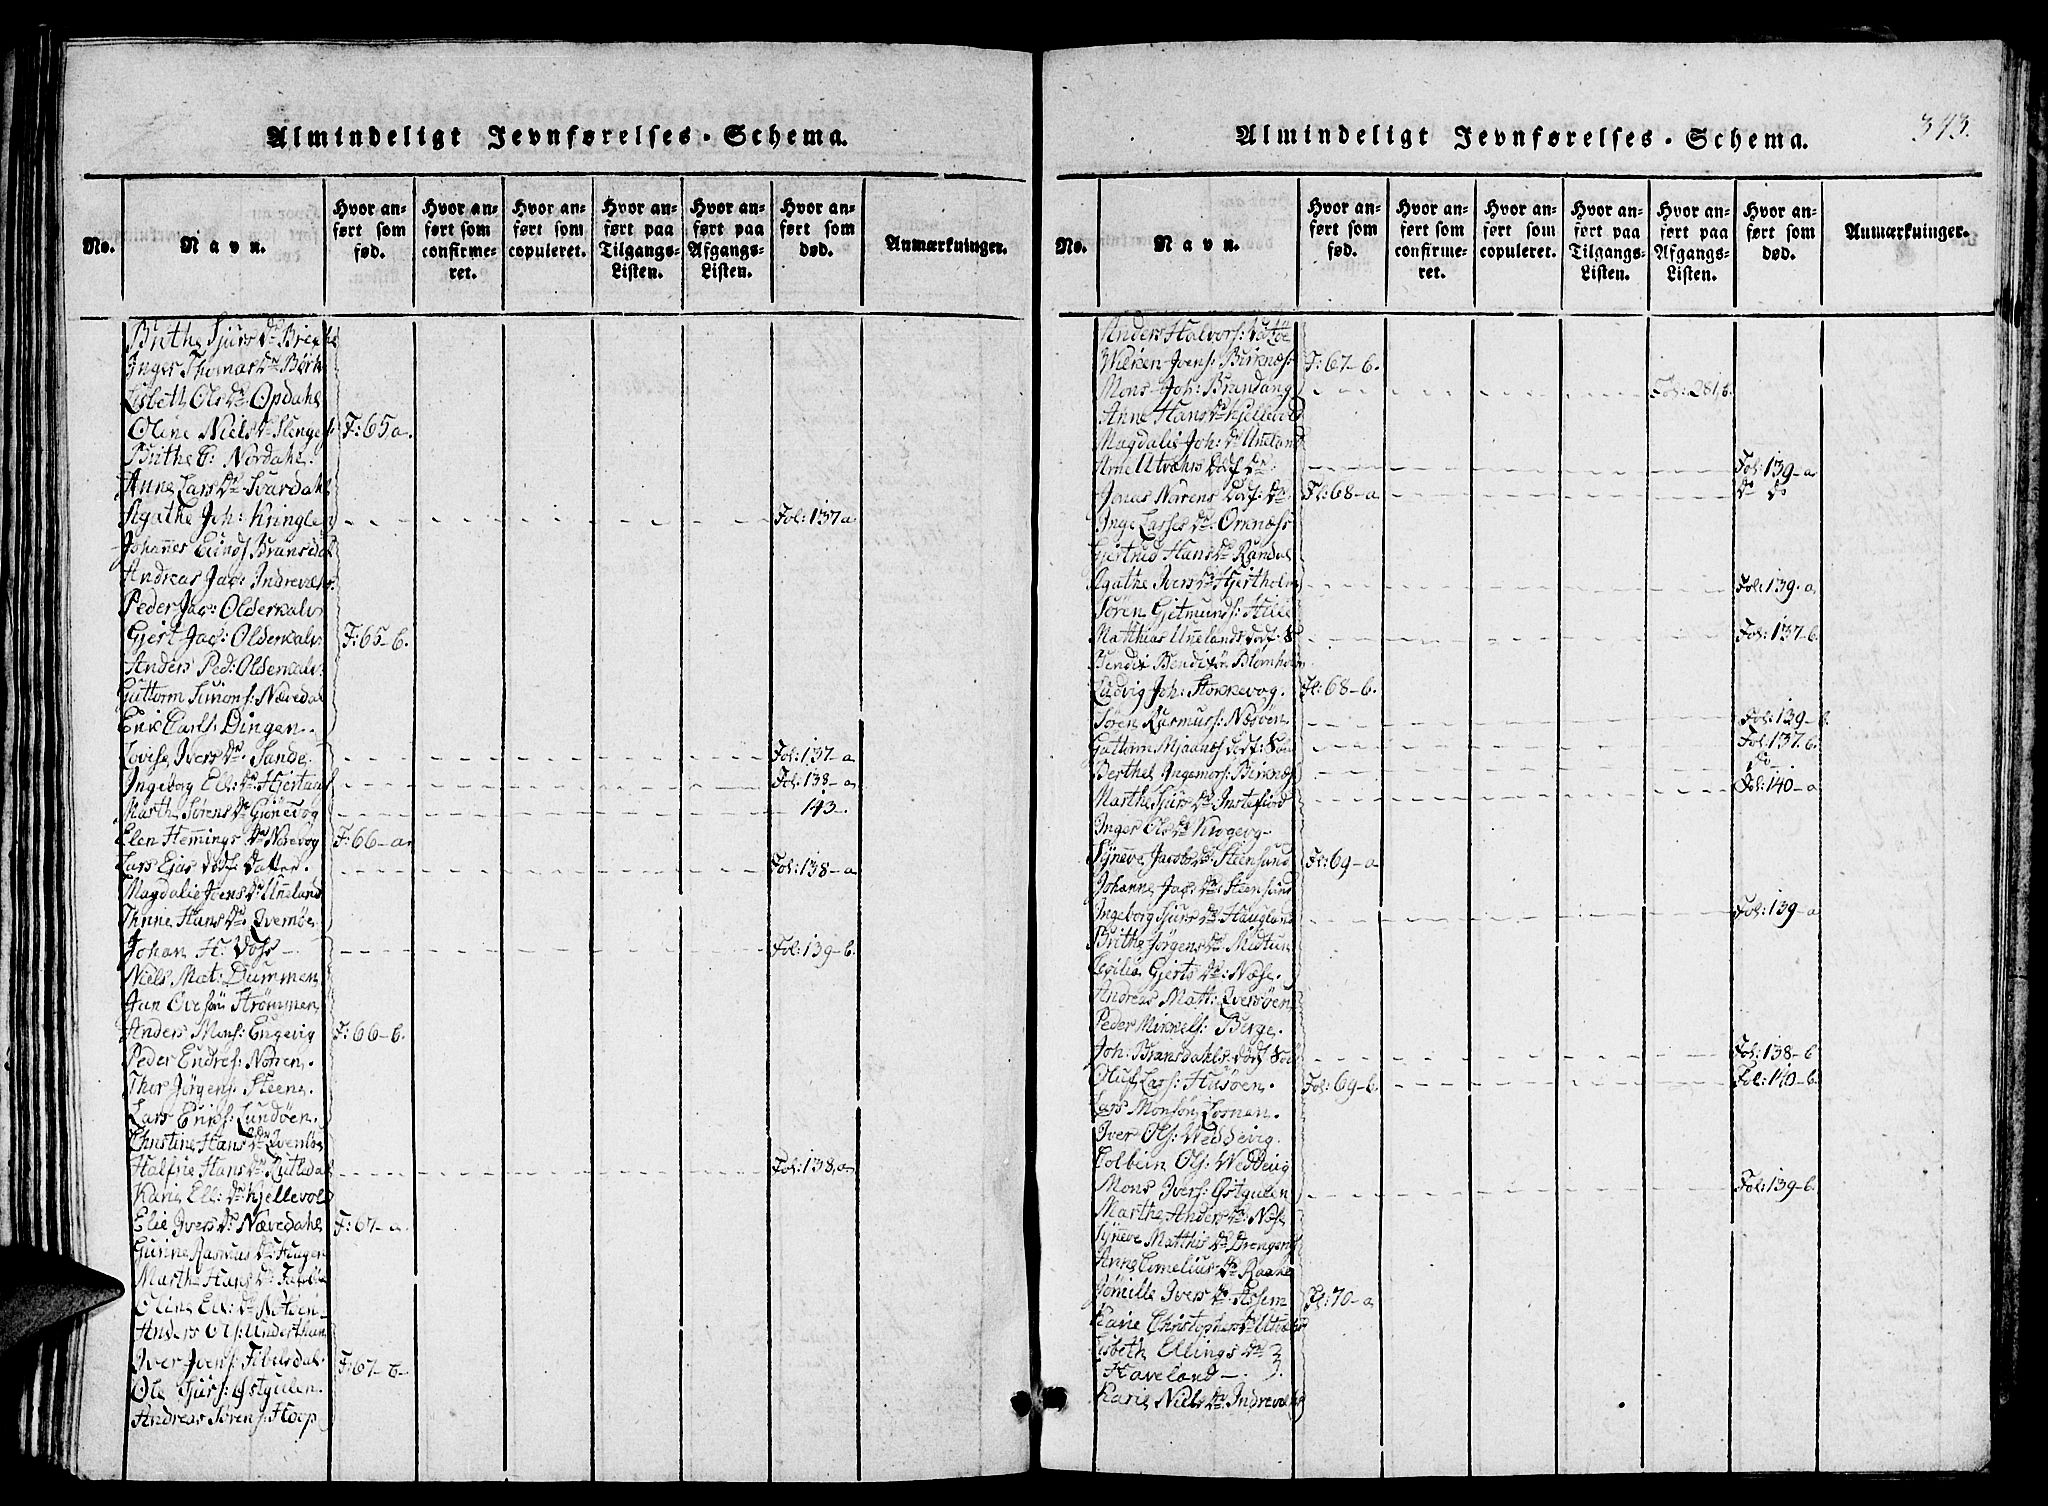 Almindeligt Jevnførelses-Schema.
No.
Navn.
Hvor anført som fød.
Hvor anført som confirmeret.
Hvor anført som copuleret.
Hvor anført paa Tilgangs-Listen.
Hvor anført paa Afgangs-Listen.
Hvor anført som død.
Anmærkninger.
Brithe Sjurs Dr
Inger Thomas Dr Børk
Lisbeth Ols Dr Opdahl
Oline Niels Dr F: 65 a.
Brithe Nordahl.
Anne Lars Dr Svardahl
Agathe Joh: Kringlen Fol: 137 a
Johannes
Andreas Jac: Indrevær
Peder Jac: Olderkalv
Gjert Jac: Olderkalv F: 65-b.
Anders Ped: Olderkalv
Guttorm Simons: Nævedal
Erik Carls: Dingen.
Lovise Ivers Dr Sande. Fol: 137-a
Ingeborg Ell: Dr Fol: 138-a
Marthe Sørens Dr 143.
Elen Hemmings Dr Norevog F: 66-a
Lars død: Datter. Fol: 138-a
Magdalie Jens Dr Unneland
Hans Dr Qvernøe
Johan H: Voss Fol: 139-b.
Niels Mat: Dummen
Jan Strømmen
Anders Mons: Engevig F: 66-b.
Peder Endres: Norren.
Thor Jørgens: Steene.
Lars Eriks: Lundøen.
Christine Hans Dr Qvernøe
Hans Dr Rutledal Fol: 138, a
Karie Ell: Dr Kjellevold
Elie Ivers Dr Nævedahl F: 67-a
Gurine Rasmus Dr Hagen
Marthe Hans Dr
Oline Ell: Dr
Anders Ols: Underthun
Iver Jens: F: 67-b
Ole Sjurs: Østgulen.
Andreas Sørens: Hoop
Almindeligt Jevnførelses-Schema.
373.
No.
Navn.
Hvor anført som fød.
Hvor anført som confirmeret.
Hvor anført som copuleret.
Hvor anført paa Tilgangs-Listen.
Hvor anført paa Afgangs-Listen.
Hvor anført som død.
Anmærkninger.
Anders Halvors:
Wilken Jens: Birknæs F: 67-b.
Mons Joh: Brandang Fol: 281, b.
Anne Hans Dr Kjellevold
Magdalie Joh: Dr Unneland
Arne Utvæhrs dødf: Dr Fol: 139-a
Jonas Norrens dødf: Dr Fl: 68-a Do do
Inge Lasses Dr: Orknæss
Gjertrud Hans Dr Randal
Agathe Ivers Dr Hjertholm Fol: 139-a,
Søren Gjetmunds: Hille
Matthias Unnelands dødf: S Fol: 137-b.
Bendix Blomholm
Ludvig Joh: Stokkevog. Fl: 68-b.
Søren Rasmuss: Næsøen Fol: 139-b.
Guttorm Mjaanæs dødf: Søn Fol: 137-b.
Berthel Ingemors: Birknæs do
Marthe Sjurs Dr Instefiord Fol: 140-a
Inger Ols Dr Krogevog-
Synneve Jacobs Dr Steensund Fl: 69-a
Johanne Jac: Dr: Steensund
Ingeborg Sjurs Dr Haugland Fol: 139-a
Brithe Jørgens Dr Midtun
Cecilie Gjerts Dr: Næse.
Andreas Matt: Qversøen
Peder Mikkels: Berge.
Joh: Bransdahls dødf Søn Fol: 138-b
Oluf Lars: Husøen. Fol: 69-b. Fol: 140-b.
Lars Monsøn Losnen.
Iver Ols: Weddevig.
Colbein Ols: Weddevig
Mons Ivers: Østgulen Fol: 139-b.
Marthe Anders Dr: Næse
Synneve Matthis Dr
Anne Cornelius Dr Raake
Ivers Dr Fl: 70-a
Karie Christophers Dr Utvær
Lisbeth Ellings Dr
Haveland-.
Karie Niels Dr Indrevær